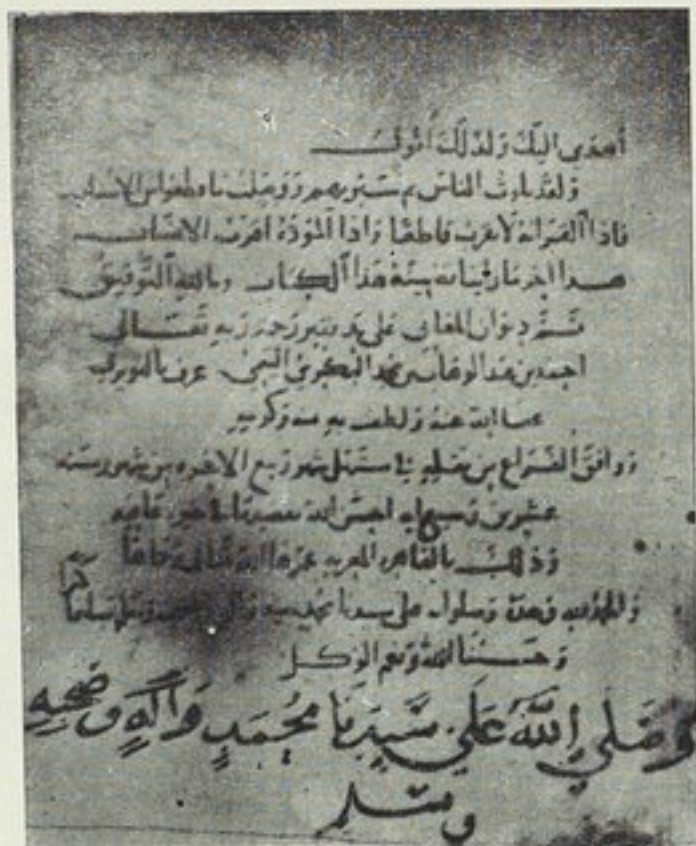 أهدى اليك ولذلك اقول
ولقد بلوت الناس ثم
فاذا القرابة لا تقرب قاطعا واذا المودة اقرب الانساب
هذا اخر ما رتبناه هذا الكتاب وبالله التوفيق
تم ديوان المعاني على يد فقير رحمة ربه تعالى
احمد بن عبد الوهاب بن محمد البكري التيمي عرف بالنويري
عفا الله عنه ولطف به بمنه وكرمه
ووافق الفراغ من في مستهل شهر ربيع الاخر من شهور سنة
عشرين وسبع ماية احسن الله
وذلك بالقاهرة المعزية عمرها الله تعالى
والحمد لله وحده وصلواته على سيدنا محمد وسلم تسليما
وحسبنا الله ونعم الوكيل
وصلي الله علي سيدنا محمد واله وصحبه
وسلم